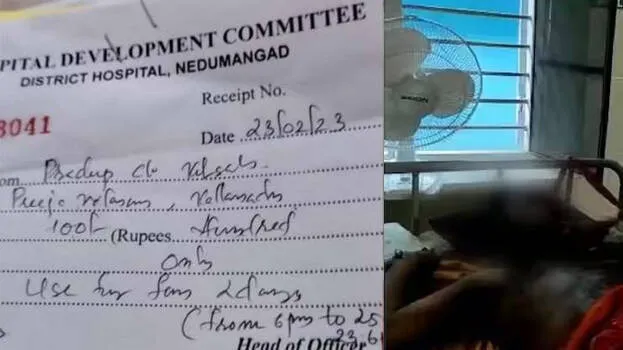 PITAL DEVELOPMENT COMMITTEE
DISTRICT HOSPITAL, NEDUMANGAD
Receipt No.
3041
Date 23/02/23
om
100/- (Rupees Hundred
only
Use for fan 2 days
(from 6pm to 25
23.6
Head of Office